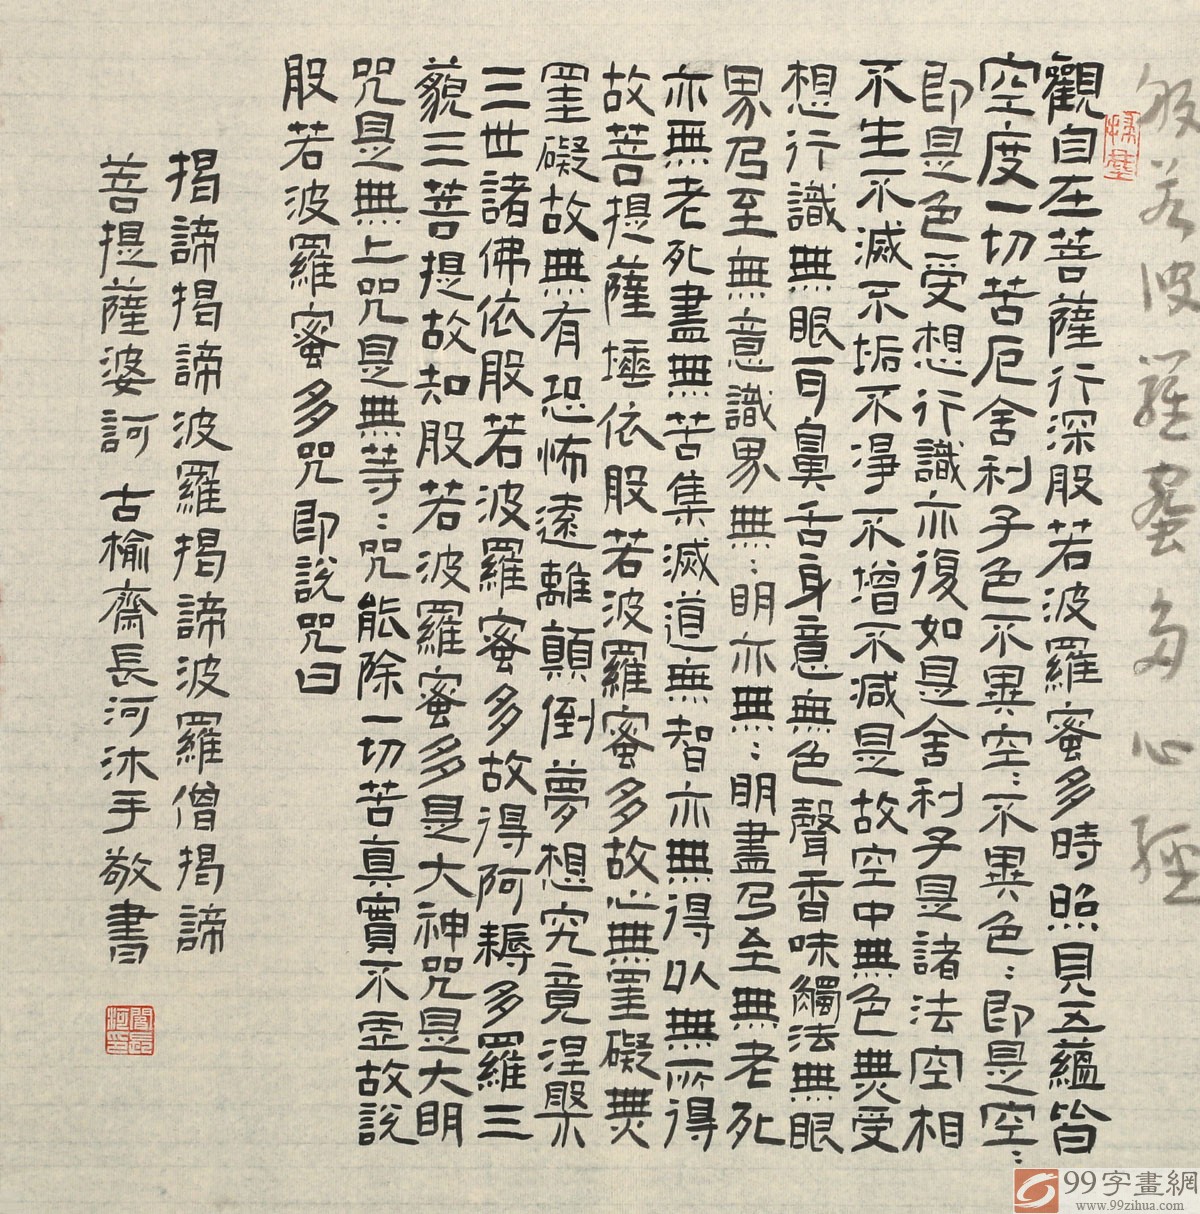 般若波羅蜜多心經
觀自在菩薩行深般若波羅蜜多時照見五蘊皆
空度一切苦厄舍利子色不異空:不異色:即是空:
即是色受想行識亦復如是舍利子是諸法空相
不生不滅不垢不淨不增不減是故空中無色無受
想行識無眼耳鼻舌身意無色聲香味觸法無眼
界乃至無意識界無:明亦無:明盡乃至無老死
亦無老死盡無苦集滅道無智亦無得以無所得
故菩提薩埵依般若波羅蜜多故心無罣礙無
罣礙故無有恐怖遠離顛倒夢想究竟涅槃
三世諸佛依般若波羅蜜多故得阿耨多羅三
藐三菩提故知般若波羅蜜多是大神咒是大明
咒是無上咒是無等:咒能除一切苦真實不虛故說
般若波羅蜜多咒即說咒曰
揭諦揭諦波羅揭諦波羅僧揭諦
菩提薩婆訶 古榆齋長河沐手敬書
閻長河印
99字畫網
www.99zihua.com